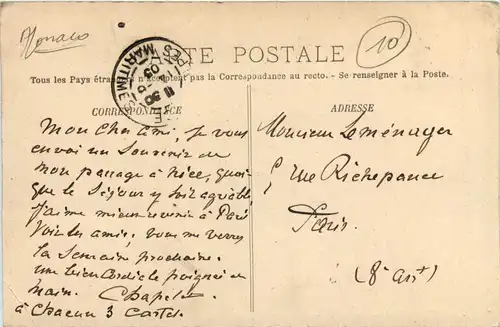 Monaco
10
CARTE POSTALE
Tous les Pays étrangers n'acceptent pas la Correspondance au recto. - Se renseigner à la Poste.
CORRESPONDANCE
Mon Cher Ami, je vous
envoi un Souvenir de
mon passage à Nice, quoi
que le Séjour y soit agréable
J'aime mieux revenir à Paris
Voir les amis. vous me verrez
la Semaine prochaine.
une bien Cordiale poignée de
main. Chapel
à Chacun 3 Cartes.
ADRESSE
Monsieur Leménager
5 rue Richepance
Paris.
(8e arrt)
MARITIMES